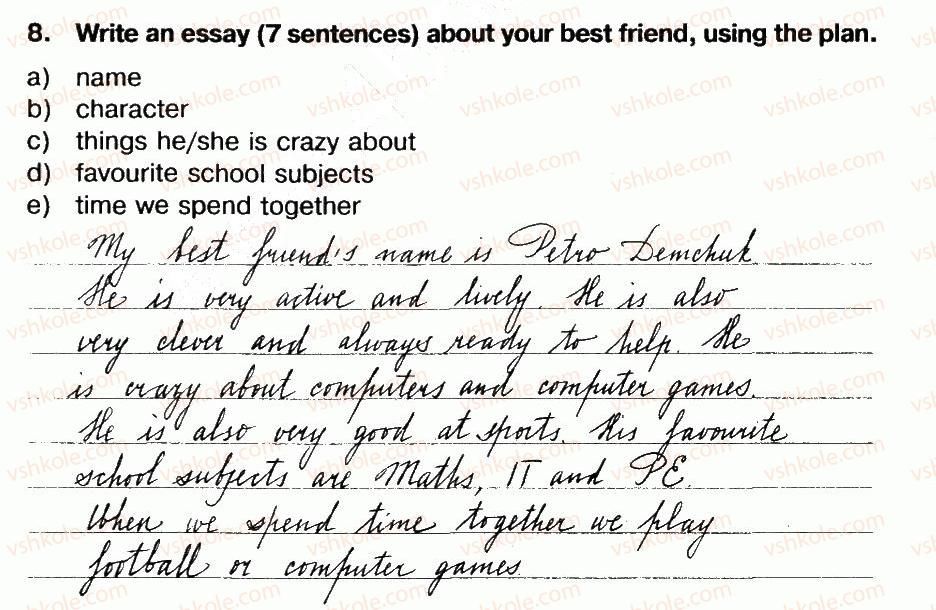 8. Write an essay (7 sentences) about your best friend, using the plan.
a) name
b) character
c) things he/she is crazy about
d) favourite school subjects
e) time we spend together
My best friend's name is Petro Demchuk
He is very active and lively. He is also
very clever and always ready to help. He
is crazy about computers and computer games.
He is also very good at sports. His favourite
school subjects are Maths, IT and PE.
When we spend time together we play
football or computer games